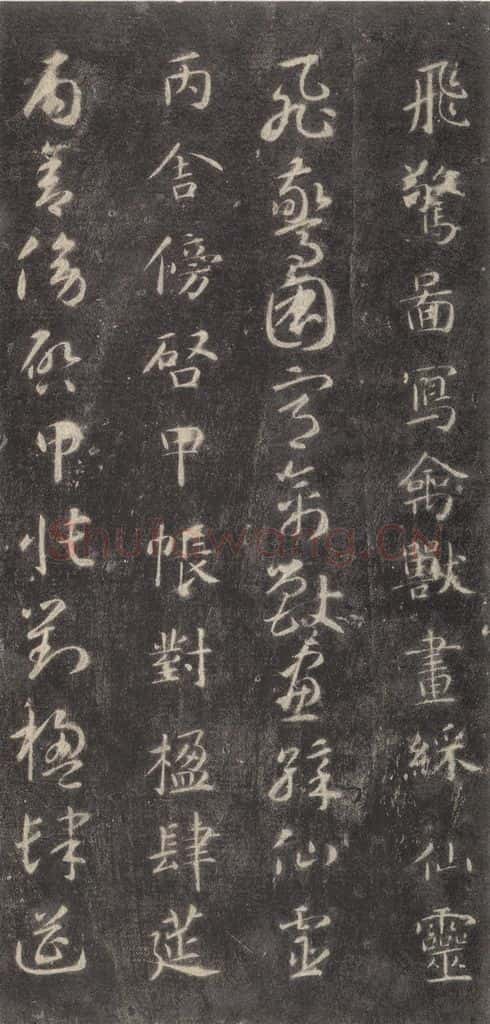 飛驚圖寫禽獸畫綵仙靈
飛驚圖寫禽獸畫綵仙靈
丙舍傍啓甲帳對楹肆筵
丙舍傍啓甲帳對楹肆筵
shufawang.CN